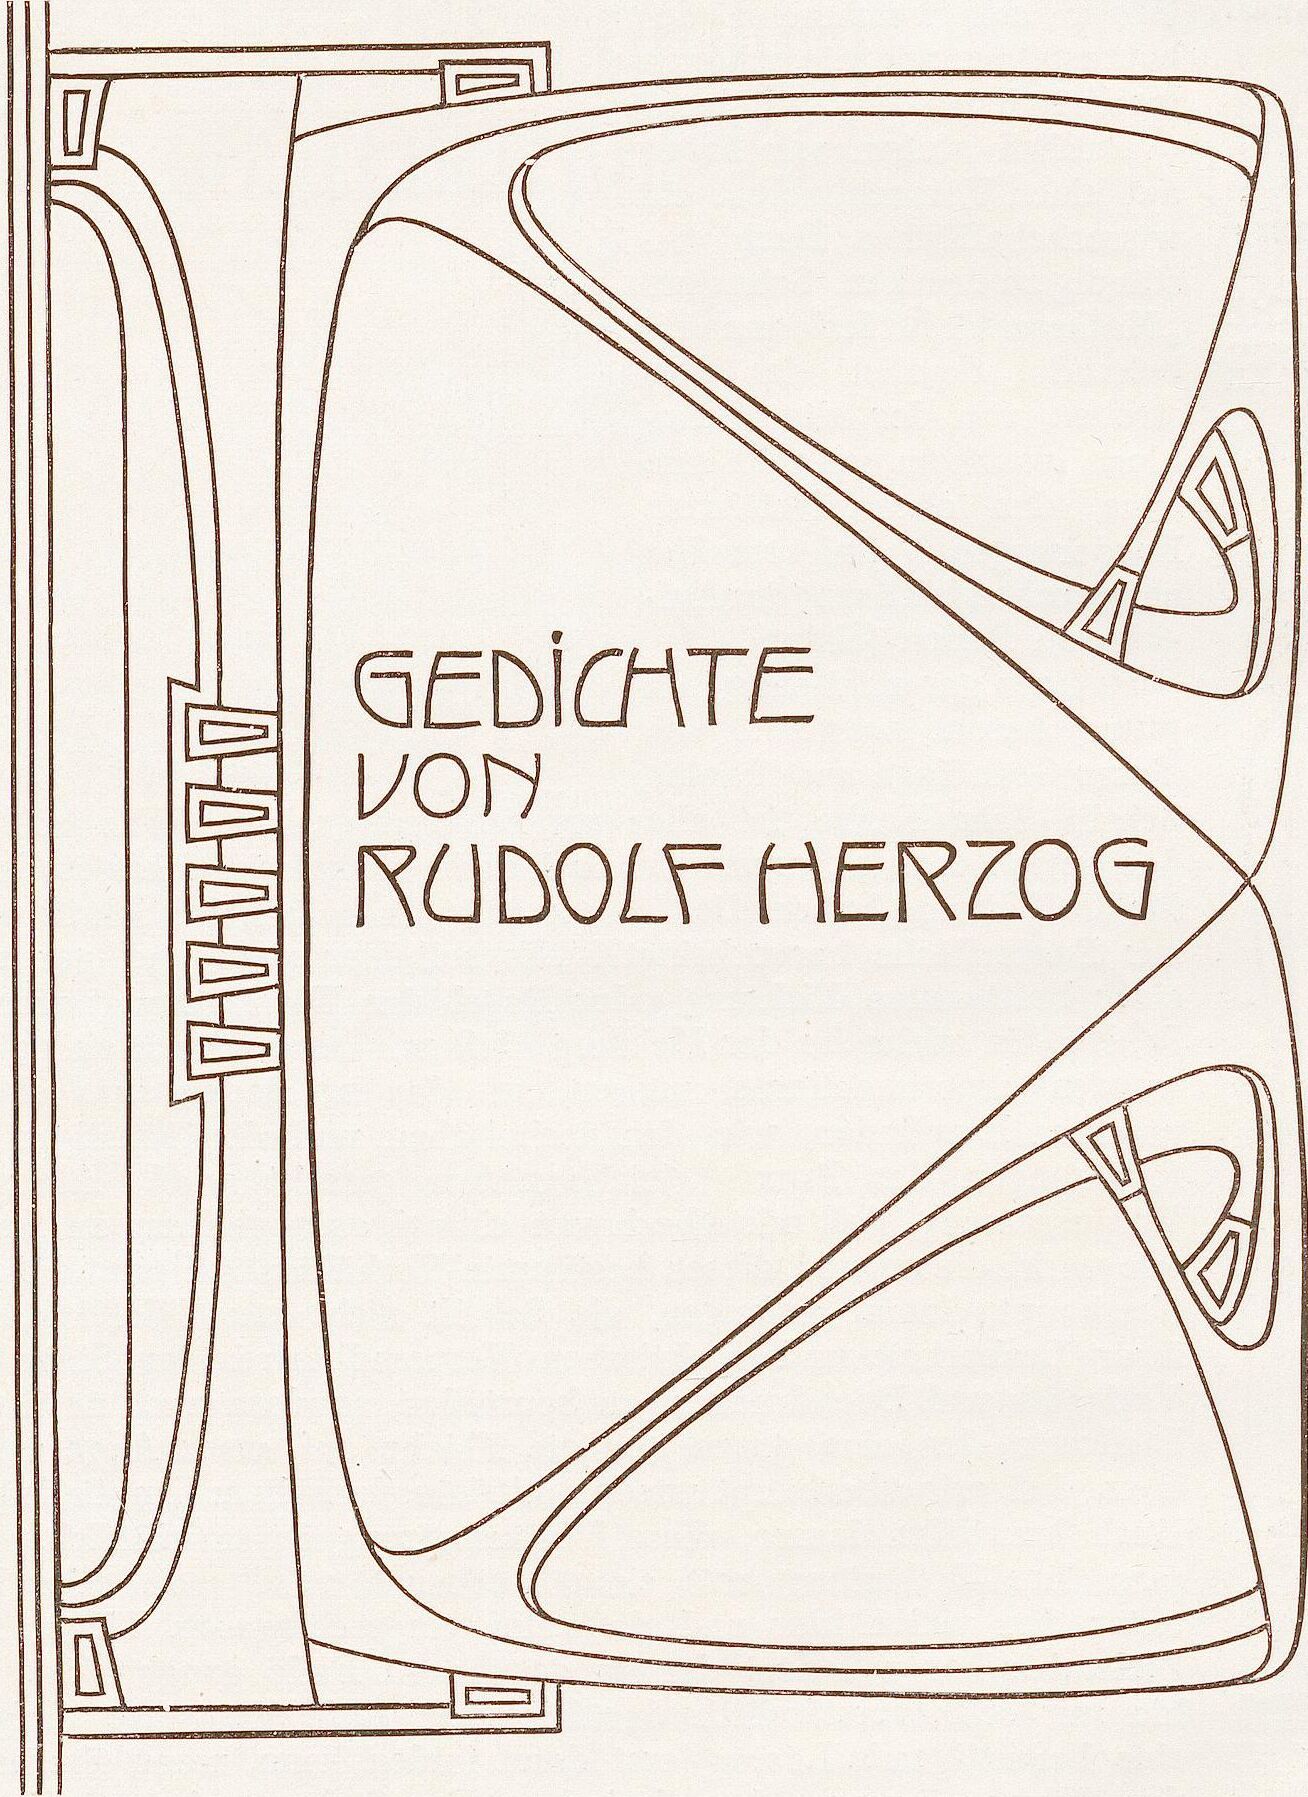 GEDICHTE
VON
RUDOLF HERZOG